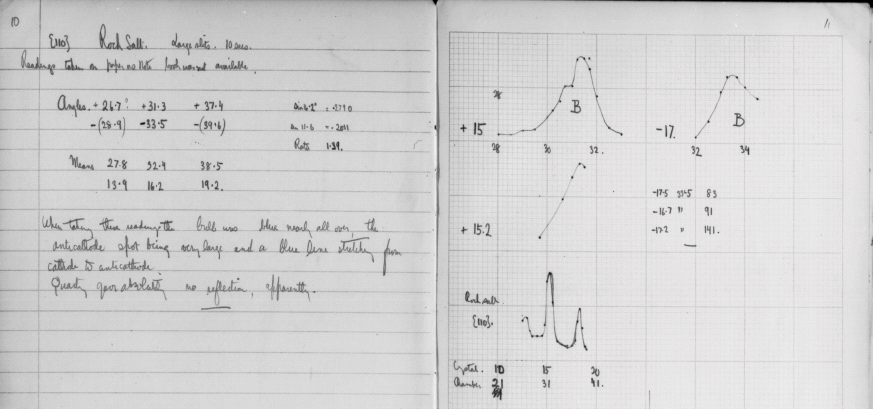 10
{110} Rock Salt. Large slits. 10 secs.
Readings taken on paper as Note book was not available.
Angles. + 26.7? +31.3 + 37.4
-(28.9) -33.5 -(39.6)
Means 27.8 32.4 38.5
13.9 16.2 19.2.
= .2790
sin 11.6 = .2011
Ratio 1.39.
When taking these readings the bulb was blue nearly all over, the
anticathode spot being very large and a blue line stretching from
cathode to anticathode
Quartz gave absolutely no reflection, apparently.
11
+ 15
B
28 30 32.
-17.
B
32 34
+ 15.2
-17.5 33.5 83
-16.7 " 91
-17.2 " 141.
Rock salt
{110}.
Crystal. 10 15 20
Chamber 21 31 41.